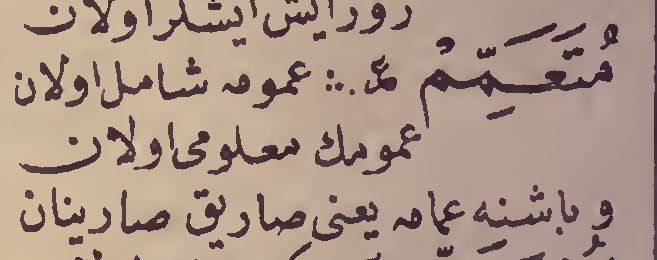 روزايش ايشلر اولان
مُتَعَمِّمْ صـ .:. عمومه شامل اولان
عمومك معلومى اولان
و باشنه عمامه يعنى صاريق صارينان